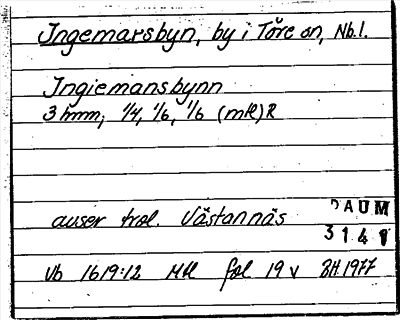 Ingemarsbyn, by i Töre sn, Nb.l.
Ingiemansbynn
3 hmm; 1/4, 1/6, 1/6 (mtl) R
avser trol. Västannäs
DAUM
3141
Vb 1619:12 Mtl fol 19 v BH 1977